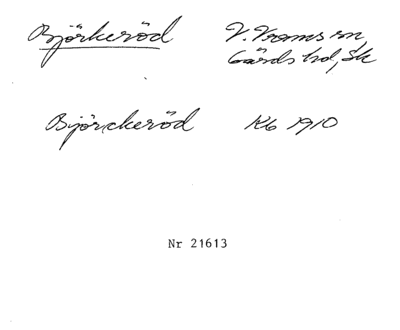 Björkeröd V. Vrams sn
Gärds hd, Sk
Björckeröd Kb 1910
Nr 21613